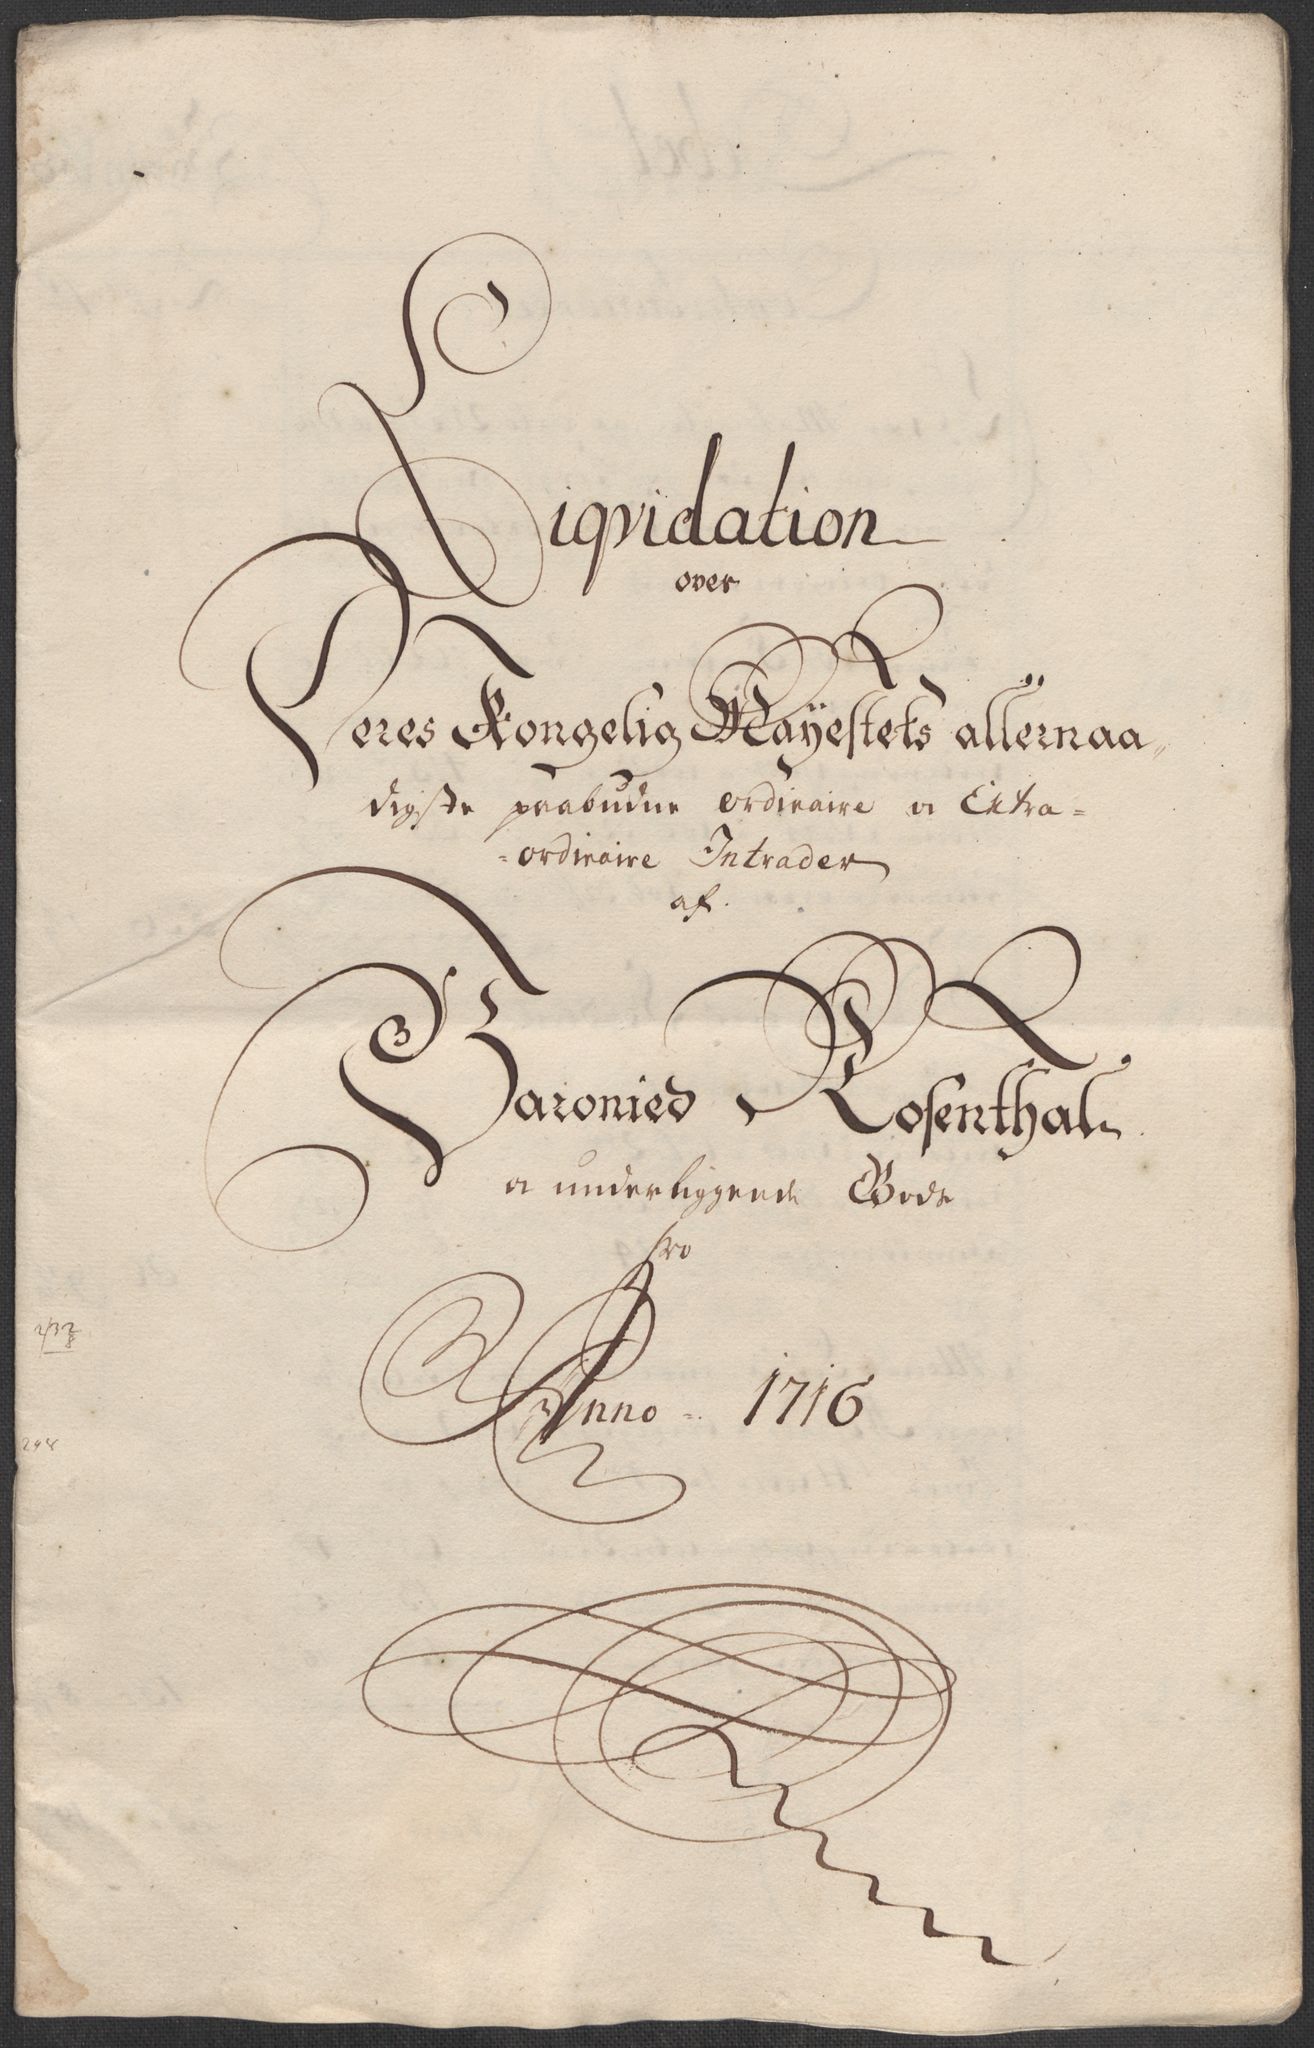 Liqvidation
over
Deres Kongelig Mayestets allernaa„
digste paabudne ordinaire oc Extra=
=ordinaire Intrader
af.
Baronied Rosenthal
oc underliggende Gods
pro
Anno 1716